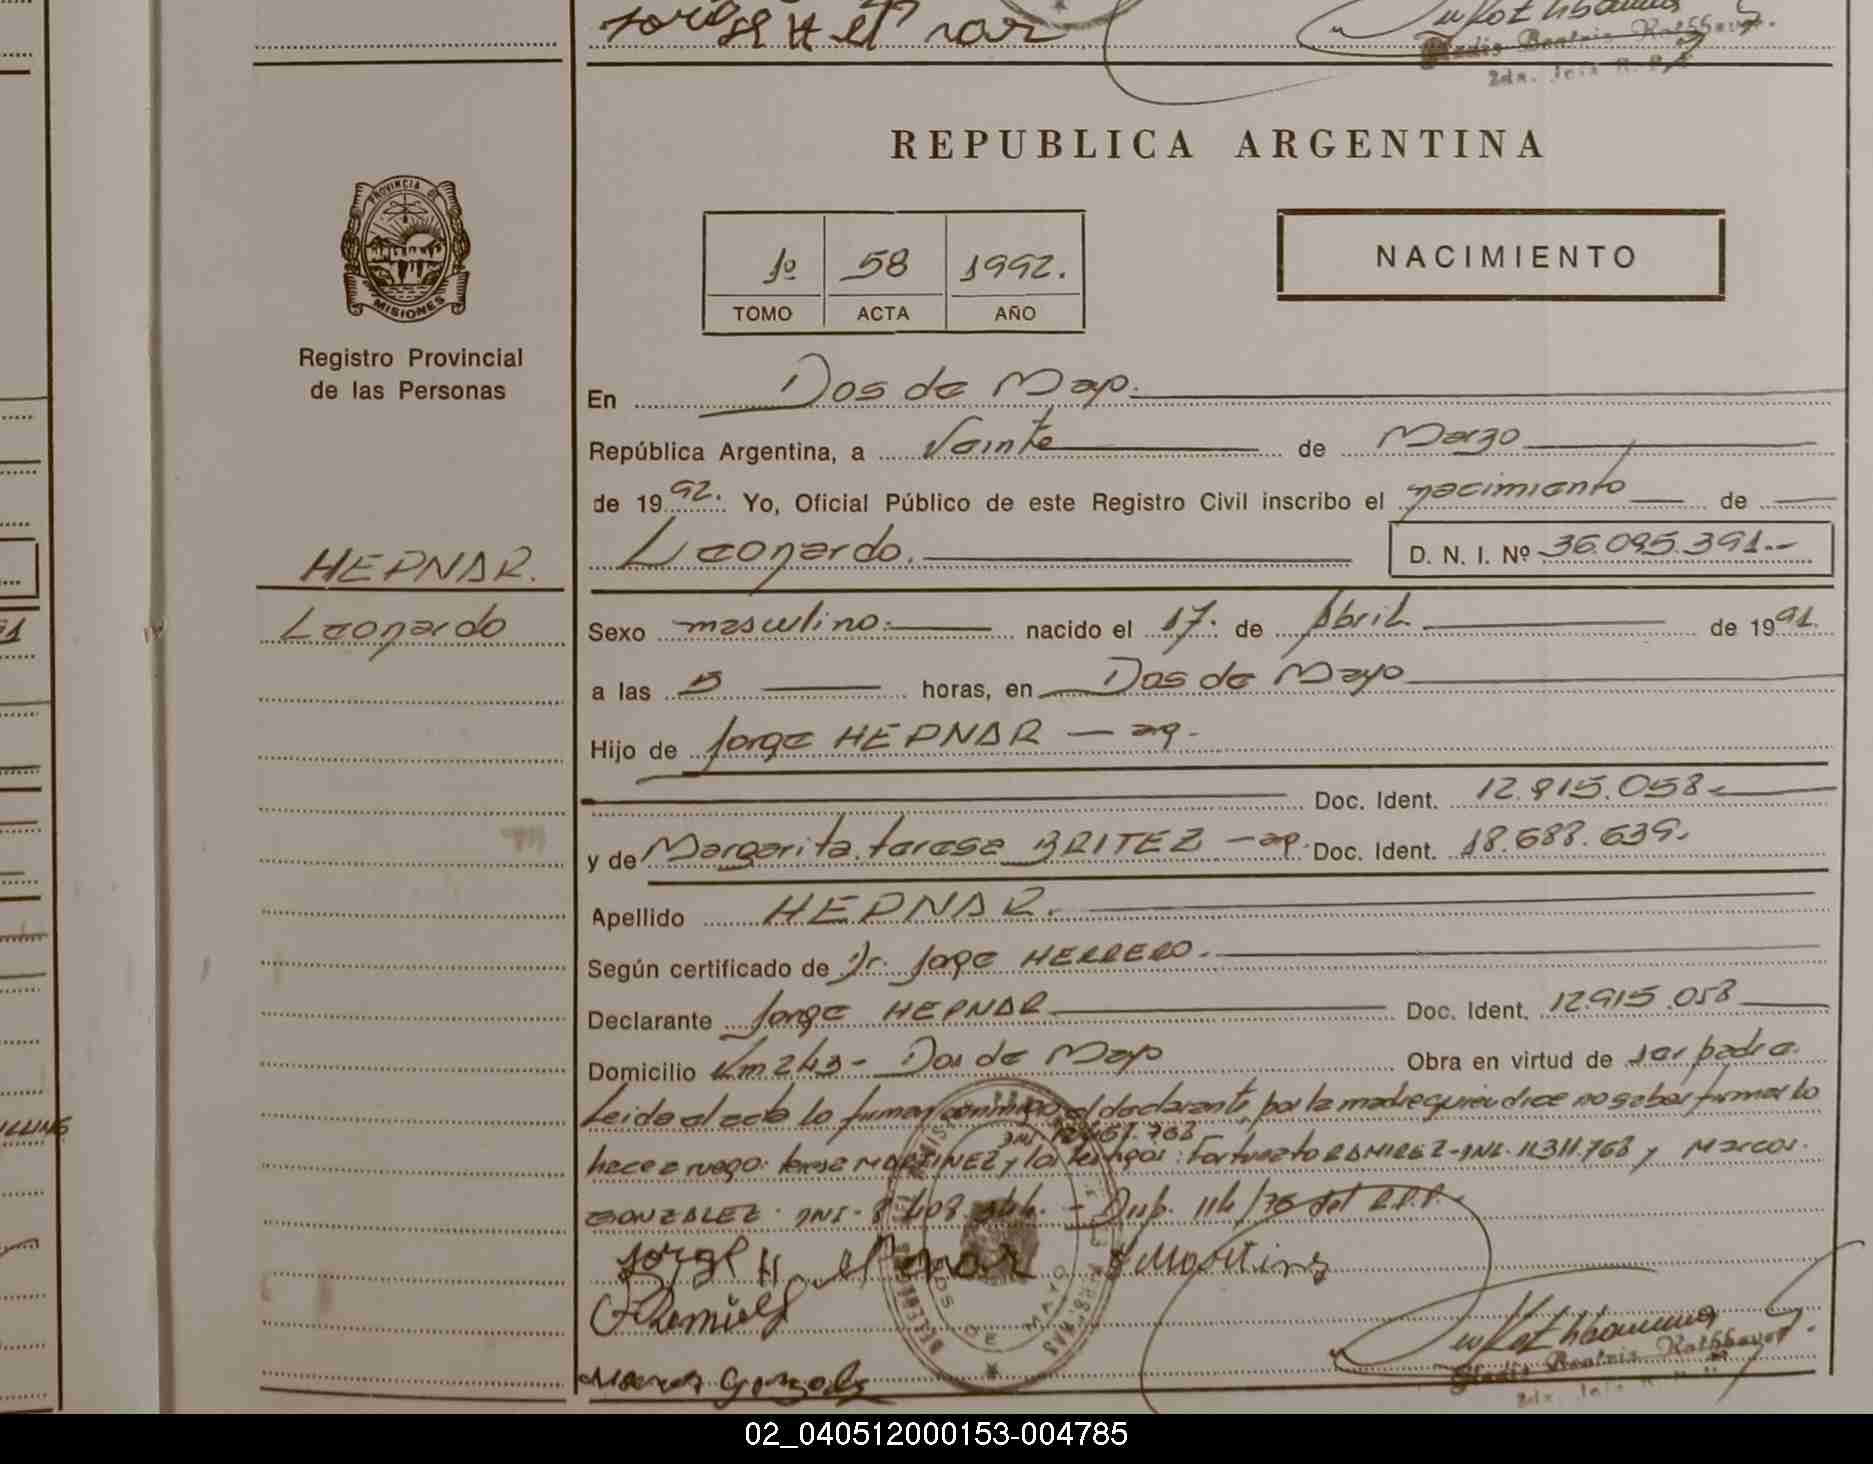 REPUBLICA ARGENTINA
PROVINCIA DE MISIONES
Registro Provincial
de las Personas
1º 58 1992.
TOMO ACTA AÑO
NACIMIENTO
En Dos de Mayo.
República Argentina, a Veinte de Marzo
de 1992. Yo, Oficial Público de este Registro Civil inscribo el nacimiento de
HEPNAR. Leonardo. D. N. I. Nº 36.095.391.-
Leonardo
Sexo masculino. nacido el 17. de Abril de 1991.
a las horas, en Dos de Mayo
Hijo de Jorge HEPNAR - ag.
Doc. Ident. 12.915.058
y de Margarita teresa BRITEZ - ag. Doc. Ident. 18.688.639.
Apellido HEPNAR.
Según certificado de Dr. Jorge HERRERO.
Declarante Jorge HEPNAR Doc. Ident. 12915.058
Domicilio Km 243 - Dos de Mayo Obra en virtud de ser padre.
Leida el acta lo firman conmigo el declarante, por la madre quien dice no saber firmar lo
hace a ruego: teresa MARTINEZ y los testigos: Fortunato RAMIREZ - DNI. 11311.768 y Marcos.
GONZALEZ. DNI - - Disp. 114/78 del R.P.P.
Jorge H
Marcos Gonzalez
Gladis Beatriz
02_040512000153-004785